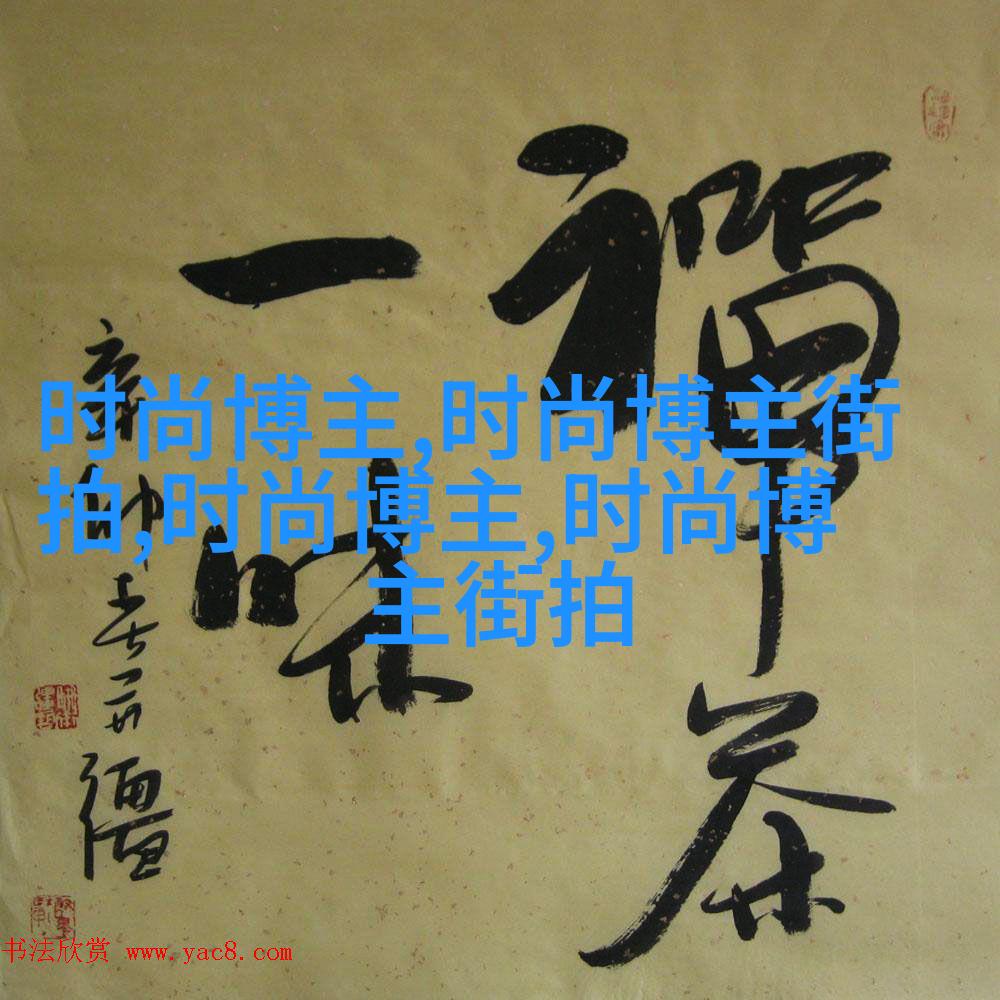 禪茶
一味
时尚博主,时尚博主街
拍,时尚博主,时尚博
主街拍
书法欣赏 www.yac8.com